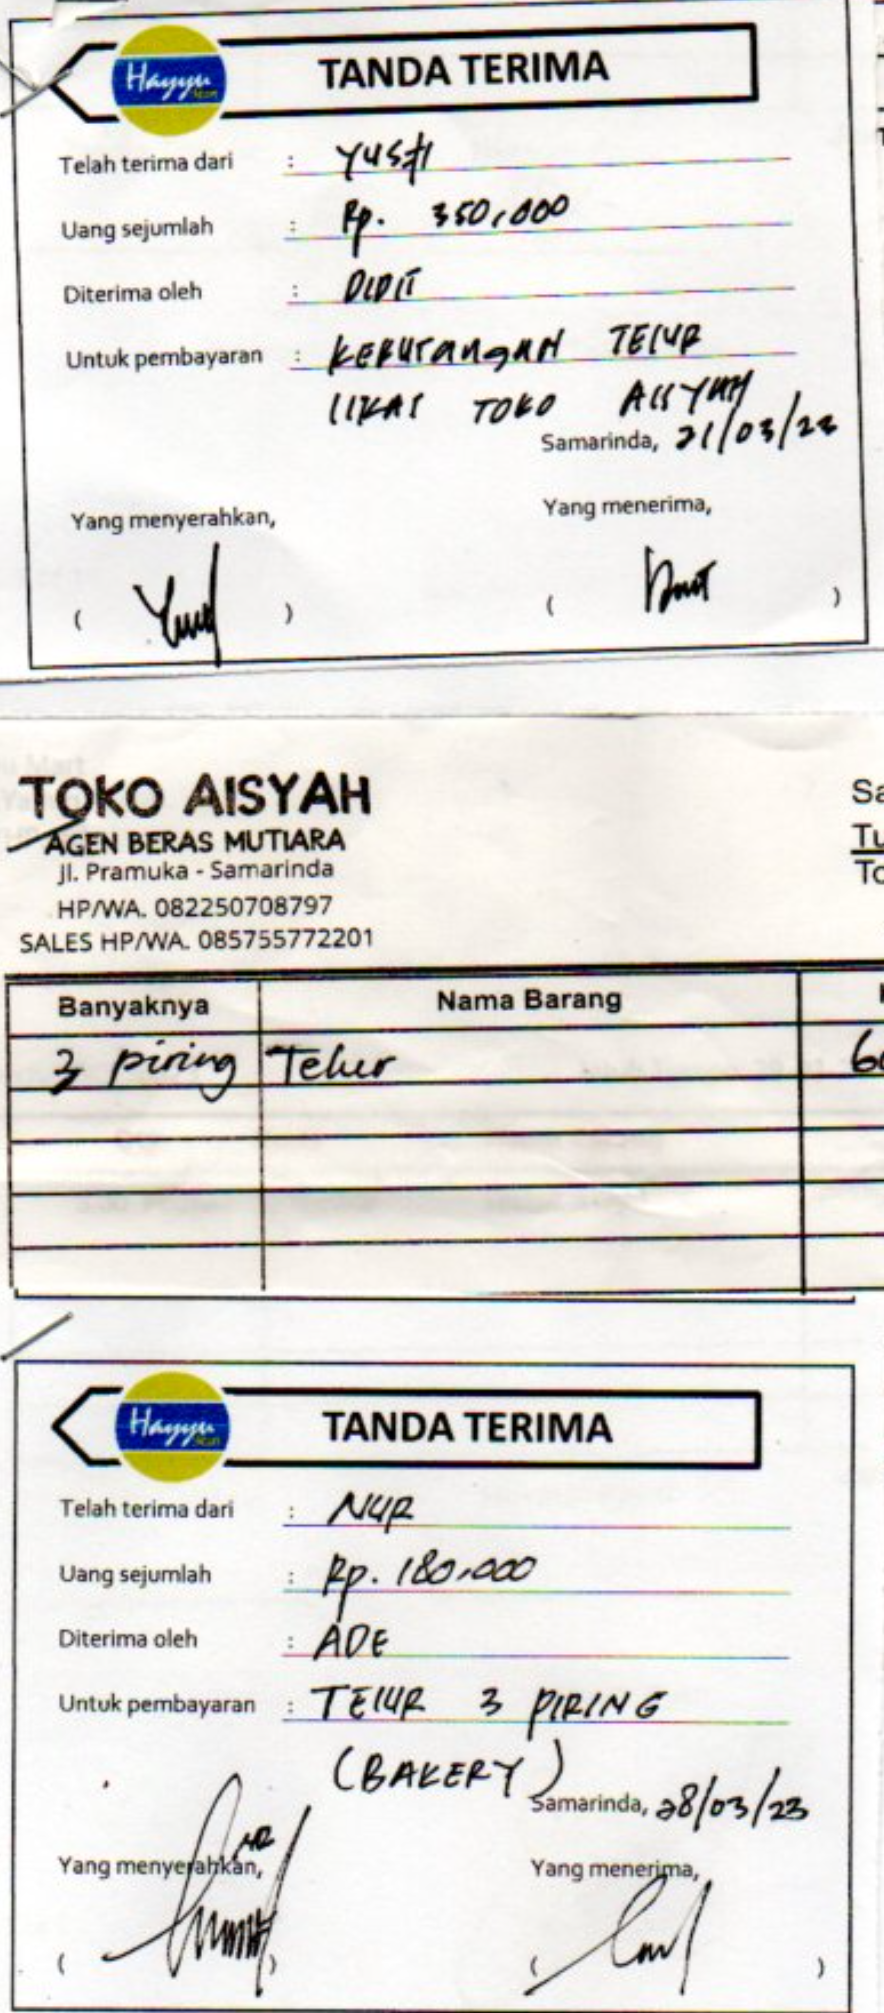 Hayyu
TANDA TERIMA
Telah terima dari : YUSFI
Uang sejumlah : Rp. 350,000
Diterima oleh : DIDIT
Untuk pembayaran : KEKURANGAN TELUR
TOKO AISYAH
Samarinda, 21/03/23
Yang menyerahkan, Yang menerima,
( ) ( )
TOKO AISYAH
AGEN BERAS MUTIARA
Jl. Pramuka - Samarinda
HP/WA. 082250708797
SALES HP/WA. 085755772201
Sa
Tu
To
Banyaknya Nama Barang
3 piring Telur
Hayyu
TANDA TERIMA
Telah terima dari : NUR
Uang sejumlah : Rp. 180.000
Diterima oleh : ADE
Untuk pembayaran : TELUR 3 PIRING
(BAKERY)
Samarinda, 28/03/23
Yang menyerahkan, Yang menerima,
( ) ( )